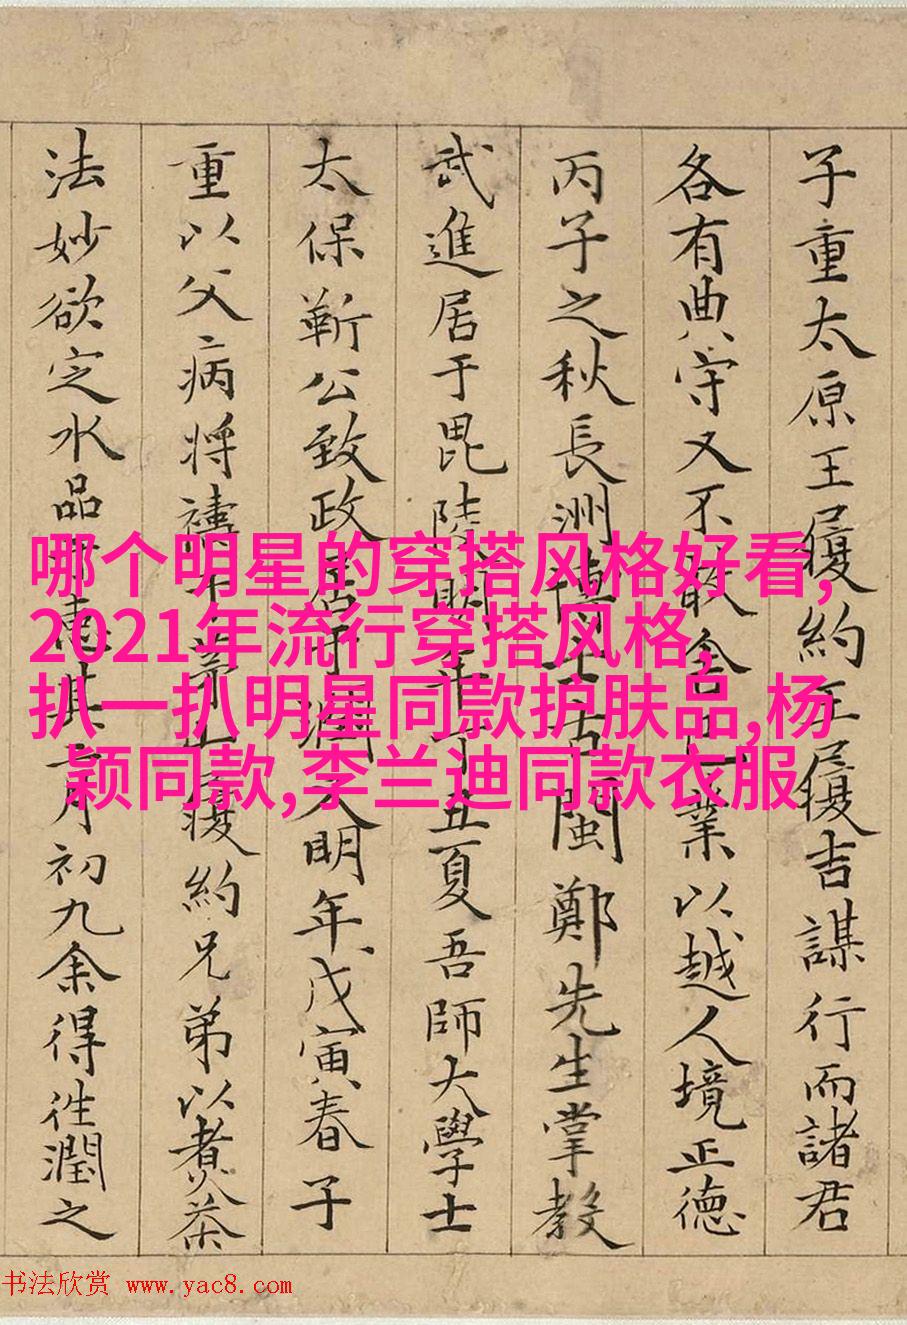 子重太原王履約王履吉謀行而諸君
各有典守又不敢舍己業以越人境正德
丙子之秋長洲博士古閩鄭先生掌教
武進居于毘陵明年丁丑夏吾師大學士
太保靳公致政居于潤又明年戊寅春子
重以父病將禱于茅山履約兄弟以煮茶
法妙欲定水品于惠其三月初九余得往潤之
哪个明星的穿搭风格好看,
2021年流行穿搭风格,
扒一扒明星同款护肤品,杨
颖同款,李兰迪同款衣服
书法欣赏 www.yac8.com